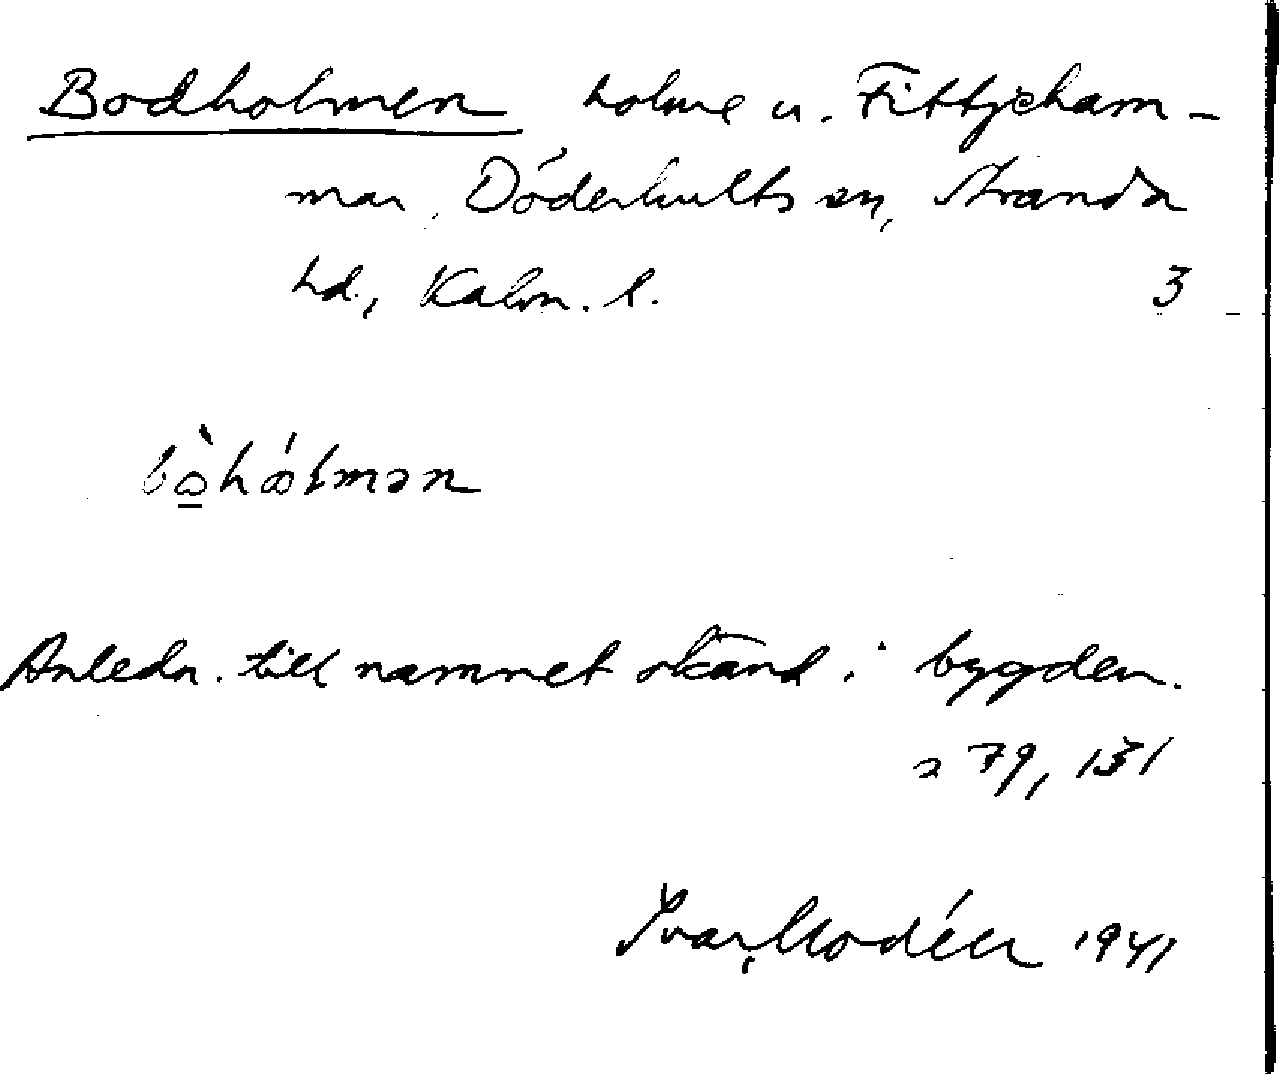 Bodholmen holme u. Fittjeham-
mar, Döderhults sn, Stranda
hd, Kalm. l. 3
Anledn. till namnet okänd i bygden.
a 79, 131
Ivar Modéer 1941